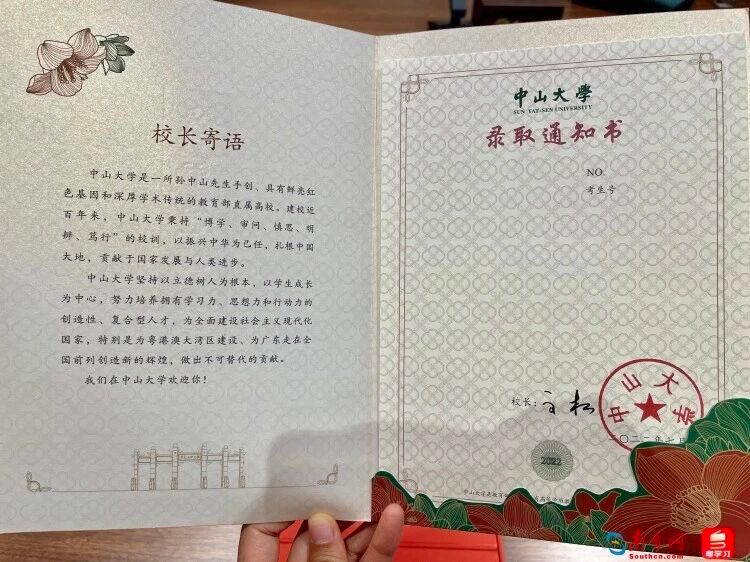 校长寄语
中山大学是一所孙中山先生手创、具有鲜亮红
色基因和深厚学术传统的教育部直属高校。建校近
百年来，中山大学秉持“博学、审问、慎思、明
辨、笃行”的校训，以振兴中华为己任，扎根中国
大地，贡献于国家发展与人类进步。
中山大学坚持以立德树人为根本，以学生成长
为中心，努力培养拥有学习力、思想力和行动力的
创造性、复合型人才，为全面建设社会主义现代化
国家，特别是为粤港澳大湾区建设、为广东走在全
国前列创造新的辉煌，做出不可替代的贡献。
我们在中山大学欢迎你！
中山大學
SUN YAT-SEN UNIVERSITY
录取通知书
NO
考生号
校长：
中山大学
二〇二二年七月
2022
中山大学是教育部
Southcn.com
粤学习